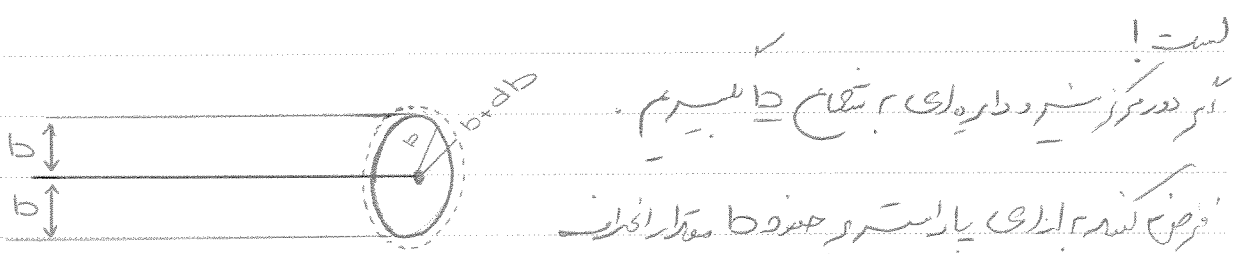 است !
اگر دور مرکز نیرو دایره‌ای به شعاع b بگیریم .
فرض کنید به ازای پارامتر برخورد b مقدار انحراف
b
b
b
b+db